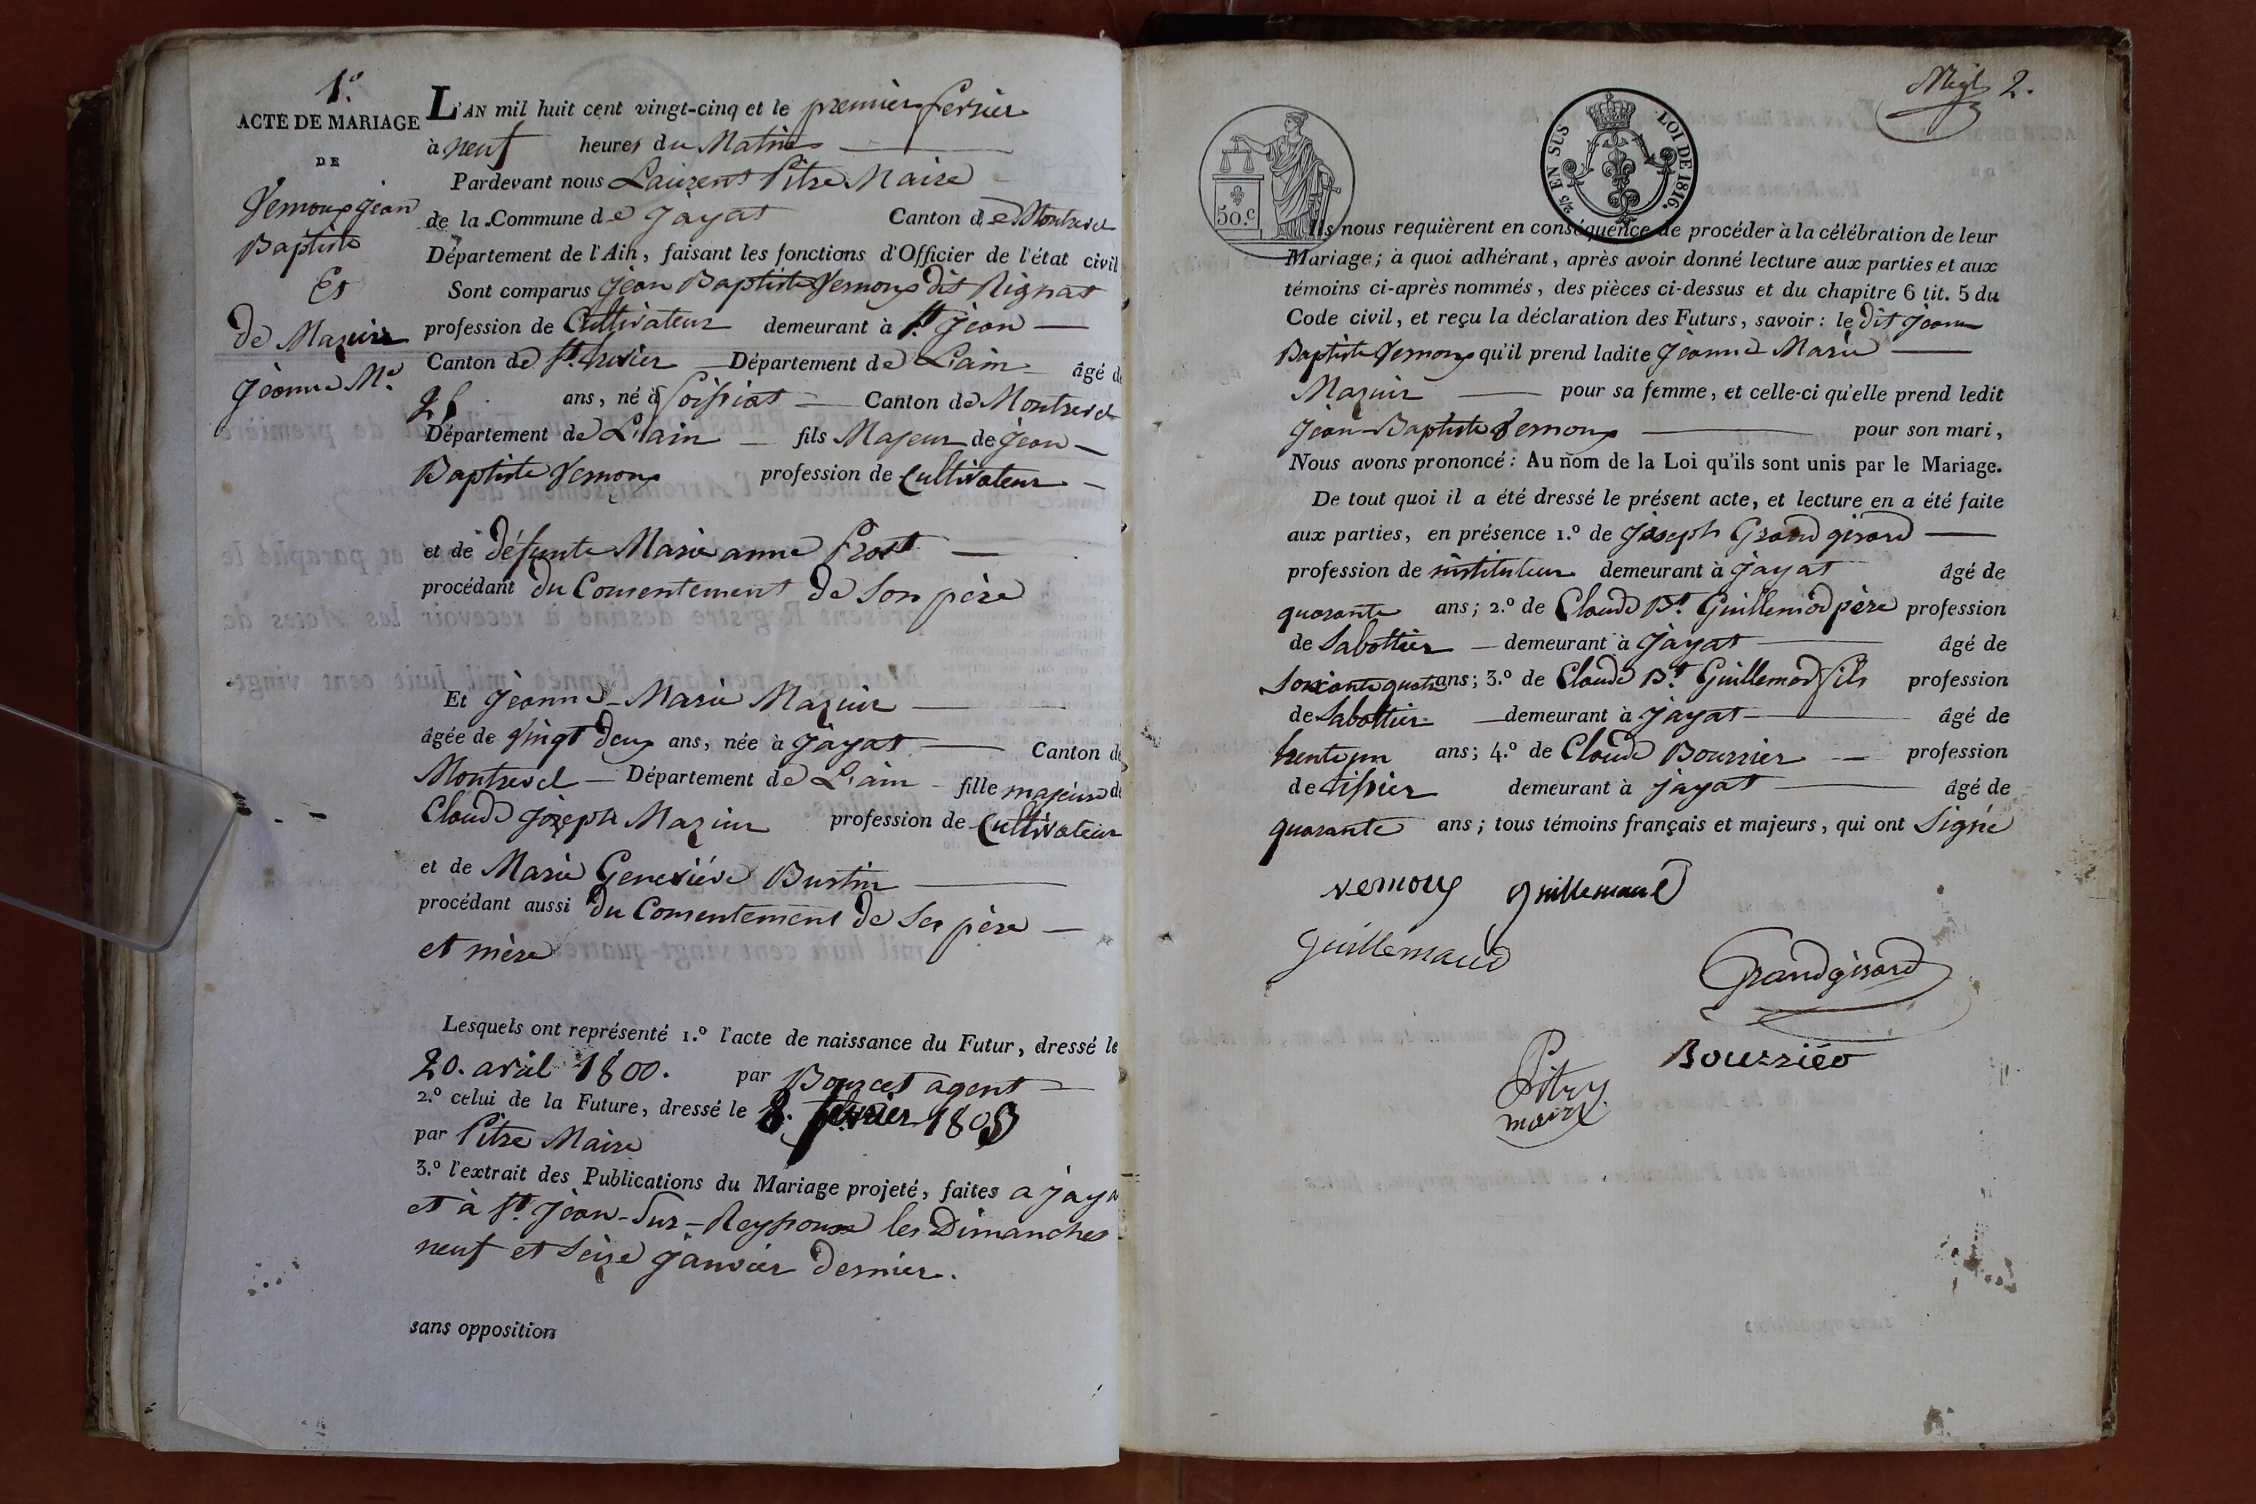 1.º
ACTE DE MARIAGE
DE
Vernoux jean
Baptiste
Et
de Mazuir
jeanne M.e
L'AN mil huit cent vingt-cinq et le premier fevrier
à neuf heures du Matin
Pardevant nous Laurent Pitre Maire
de la Commune de jayat Canton de Montrevel
Département de l'Ain, faisant les fonctions d'Officier de l'état civil
Sont comparus jean Baptiste Vernoux dit Rignat
profession de Cultivateur demeurant à St. jean
Canton de St. trivier Département de L'ain âgé de
ans, né à foissiat Canton de Montrevel
Département de L'ain fils Majeur de jean
Baptiste Vernoux profession de Cultivateur
et de défunte Marie anne Prost
procédant du Consentement de son père
Et jeanne-Marie Mazuir
âgée de vingt deux ans, née à jayat Canton de
Montrevel Département de L'ain fille majeure de
Claude jozeph Mazuir profession de Cultivateur
et de Marie Geneviéve Burtin
procédant aussi du Consentement de ses père
et mère
Lesquels ont représenté 1.º l'acte de naissance du Futur, dressé le
20. avril 1800. par agent
2.º celui de la Future, dressé le 8. fevrier 1803
par Pitre Maire
3.º l'extrait des Publications du Mariage projeté, faites a jaya
et à St. jean-Sur-Reyssouze les Dimanches
neuf et seize janvier dernier.
sans opposition
2.
50.c
2/5 EN SUS
LOI DE 1816.
Ils nous requièrent en conséquence de procéder à la célébration de leur
Mariage; à quoi adhérant, après avoir donné lecture aux parties et aux
témoins ci-après nommés, des pièces ci-dessus et du chapitre 6 tit. 5 du
Code civil, et reçu la déclaration des Futurs, savoir: le dit jean
Baptiste Vernoux qu'il prend ladite jeanne Marie
Mazuir pour sa femme, et celle-ci qu'elle prend ledit
jean-Baptiste Vernoux pour son mari,
Nous avons prononcé: Au nom de la Loi qu'ils sont unis par le Mariage.
De tout quoi il a été dressé le présent acte, et lecture en a été faite
aux parties, en présence 1.º de joseph Grand girard
profession de instituteur demeurant à jayat âgé de
quarante ans; 2.º de Claude Bt. Guillemod père profession
de Sabottier demeurant à jayat âgé de
soixante quatre ans; 3.º de Claude Bt. Guillemod fils profession
de Sabottier demeurant à jayat âgé de
trente un ans; 4.º de Claude Bourrier profession
de tissier demeurant à jayat âgé de
quarante ans; tous témoins français et majeurs, qui ont Signé
vernoux guillemaud
guillemaud
Grandgirard
Bourrier
Pitre
maire